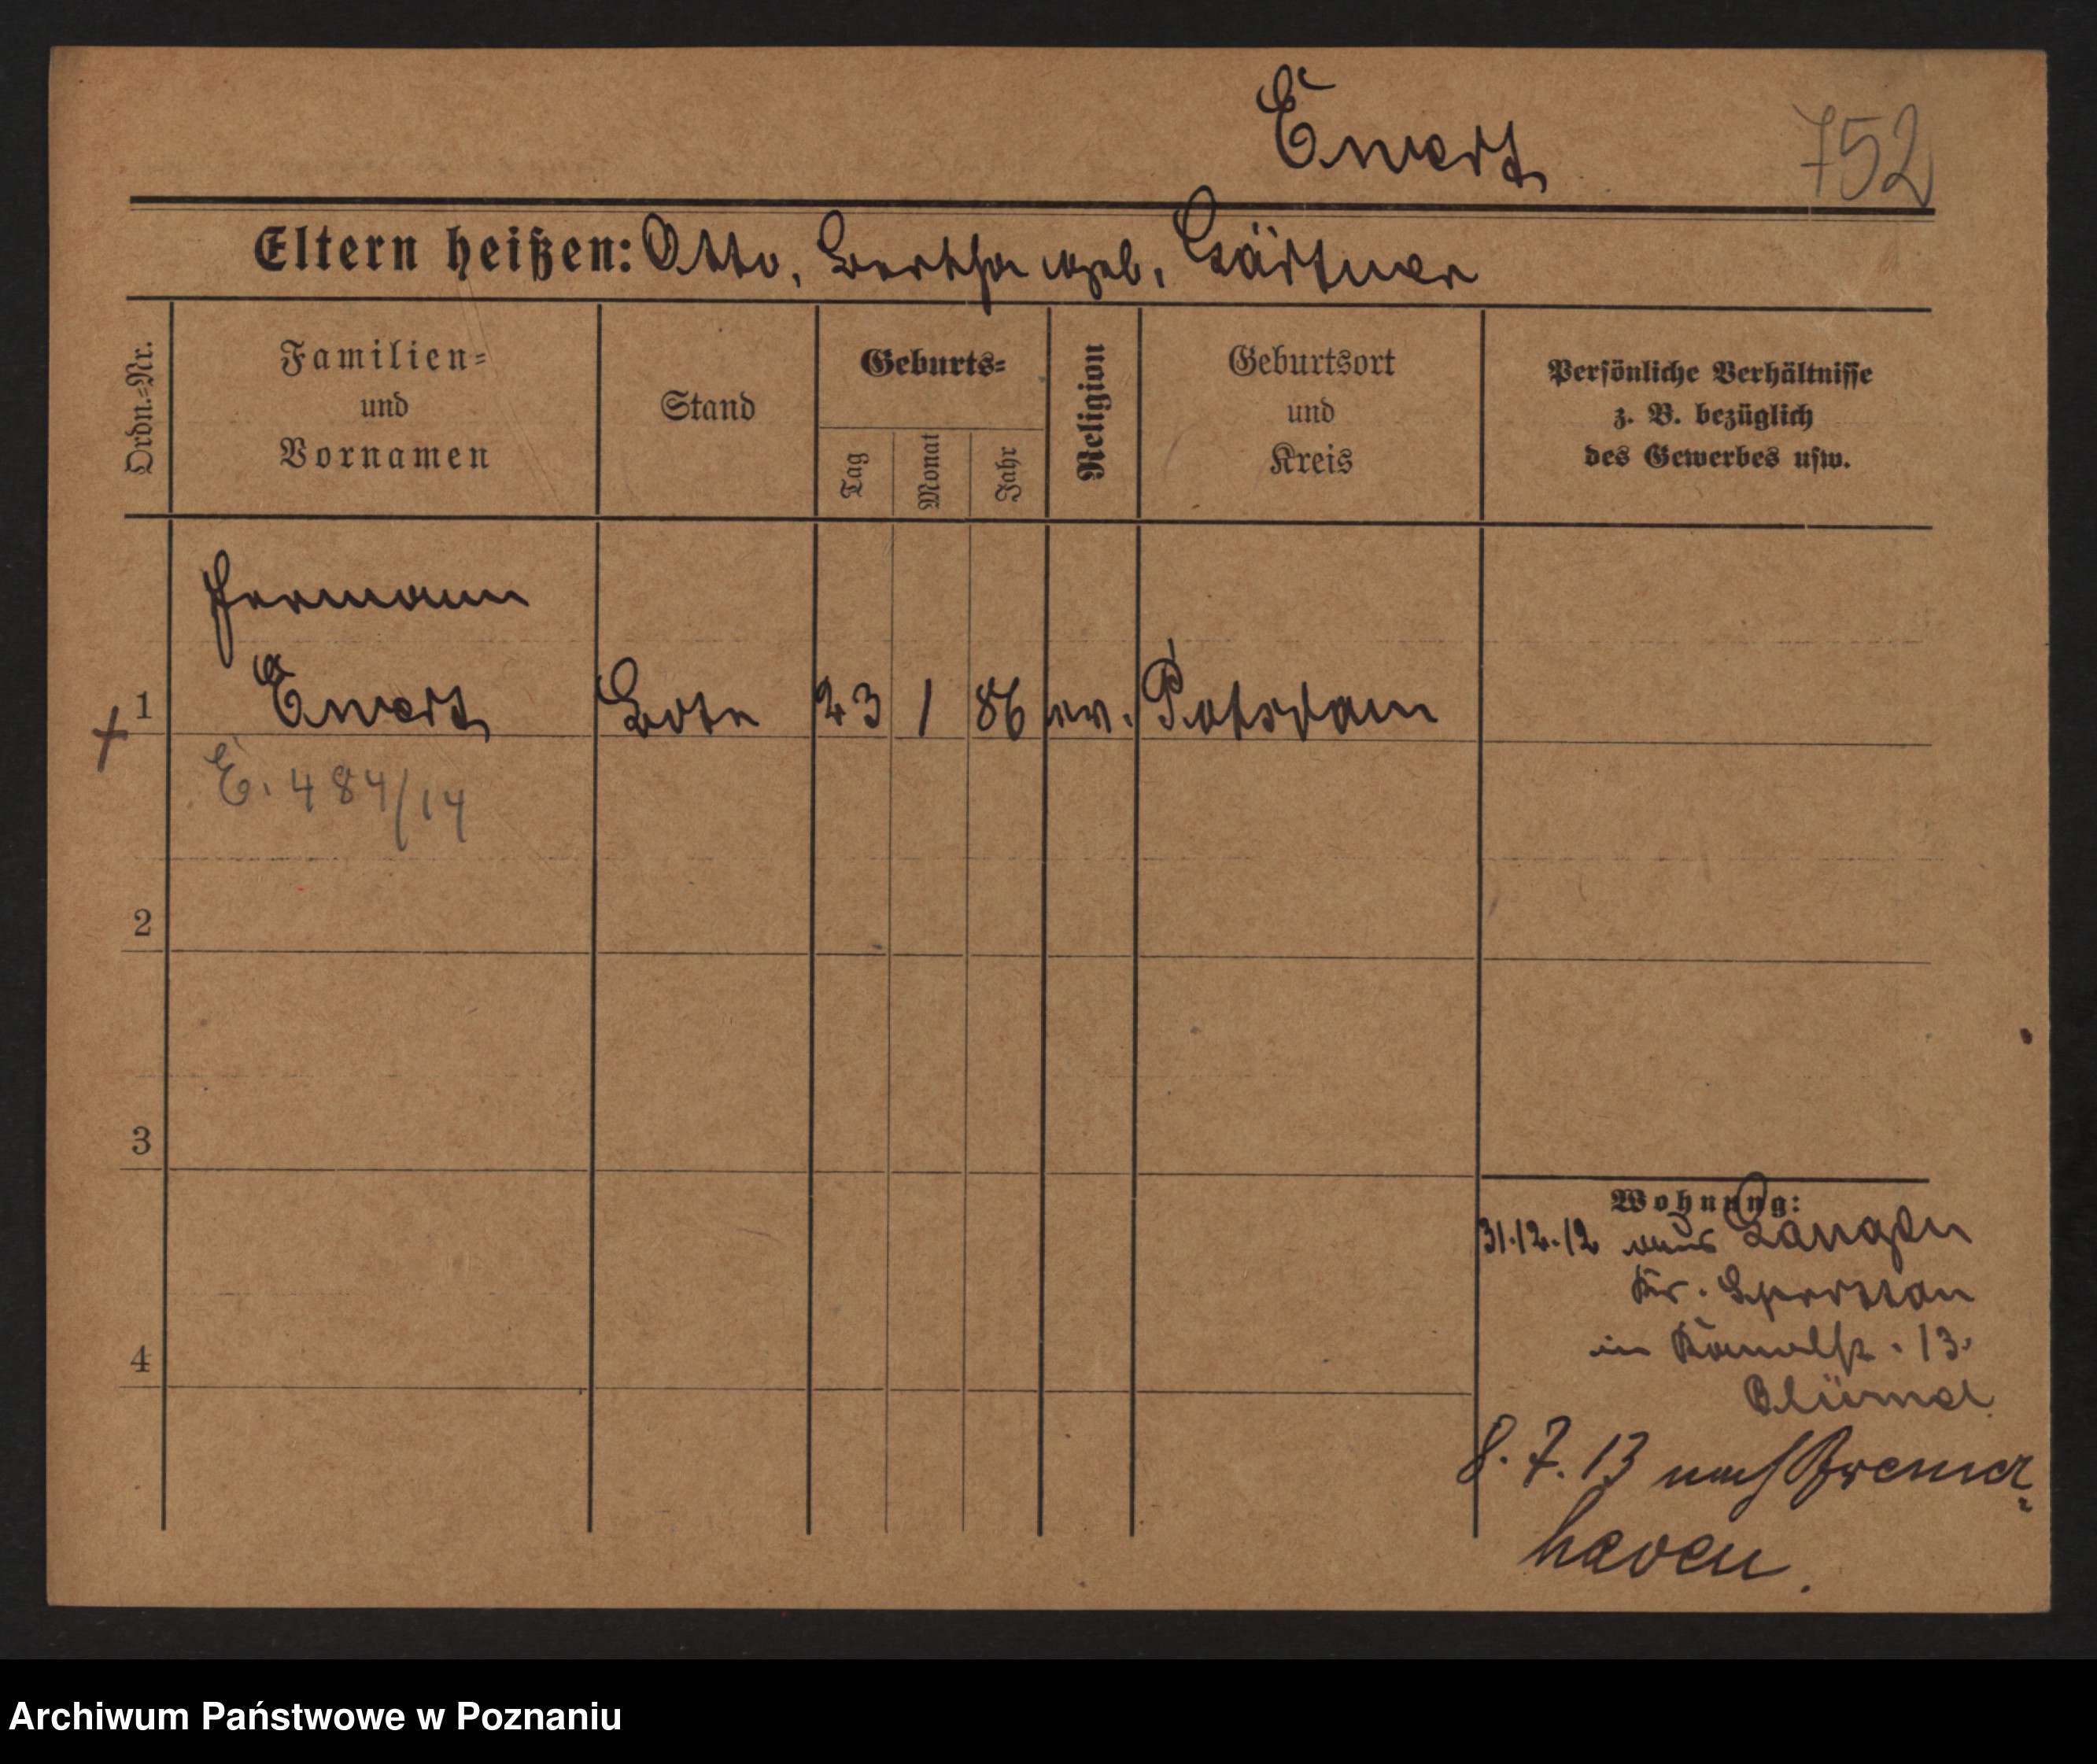 Ewert
752
Eltern heißen: Otto, Bertha geb. Gärtner
Ordn.=Nr.
Familien=
und
Vornamen
Stand
Geburts=
Tag
Monat
Jahr
Religion
Geburtsort
und
Kreis
Persönliche Verhältnisse
z. B. bezüglich
des Gewerbes usw.
Hermann
1 Ewert Bote 23 1 86 ev. Potsdam
E. 484/14
2
3
4
Wohnung:
31.12.12 aus Langen
Kr.
in Kanalstr. 13.
Blümel
8.7.13 nach Bremer=
haven.
Archiwum Państwowe w Poznaniu